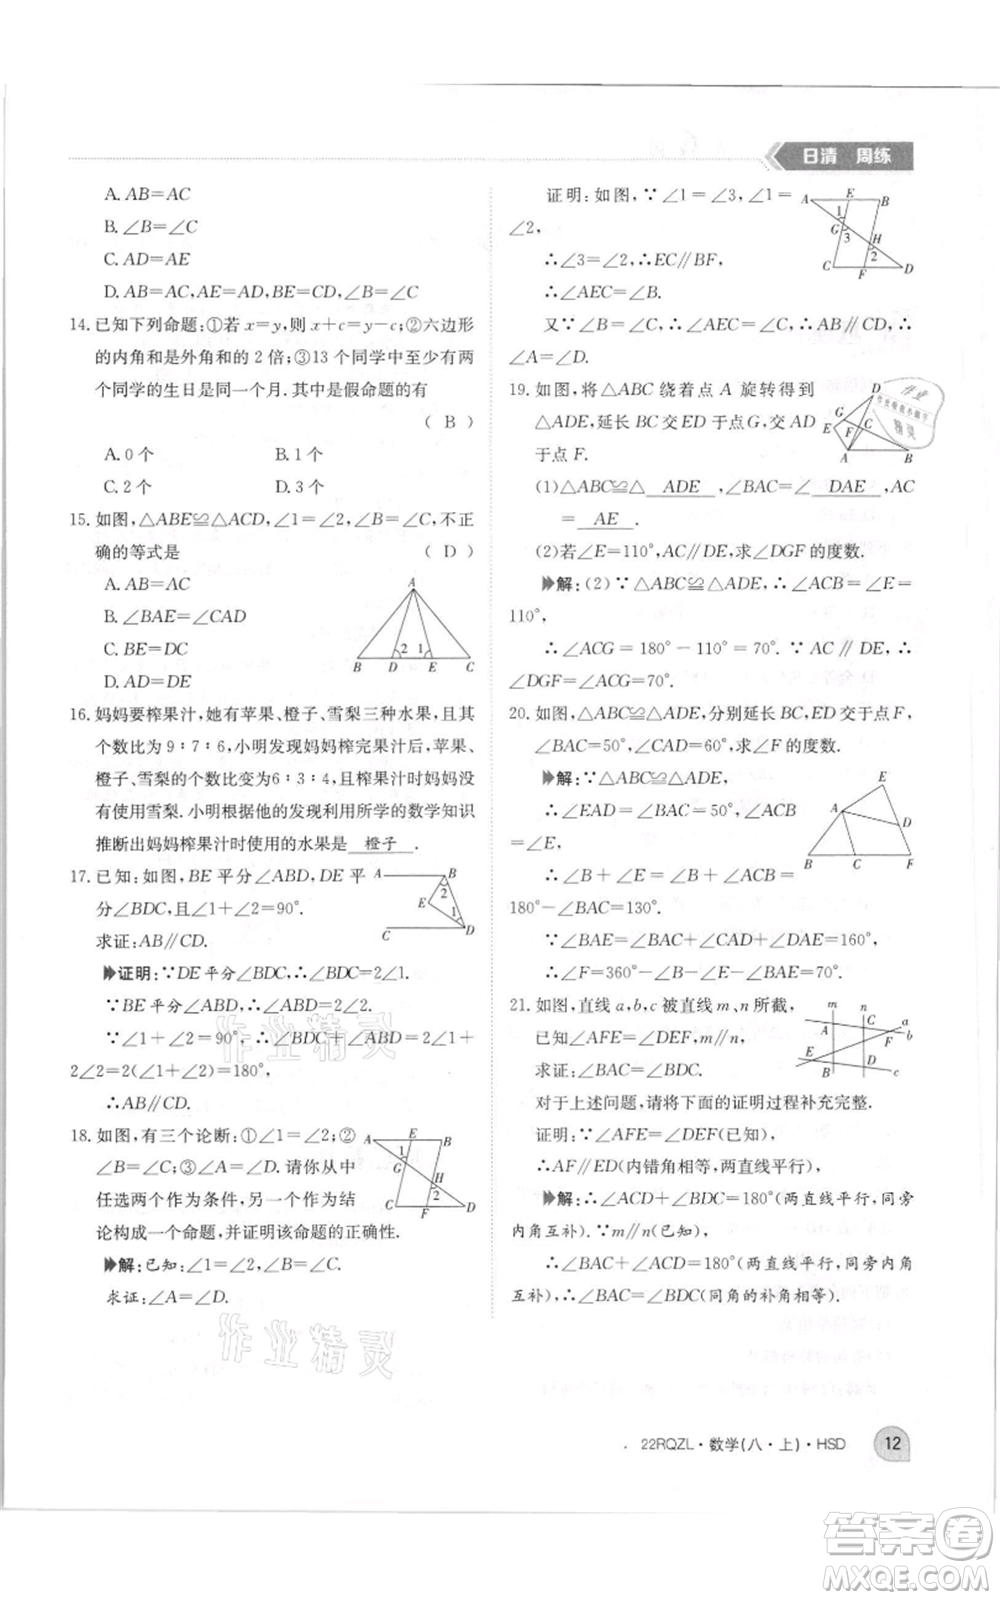 日清 周练
A. AB=AC
B. ∠B=∠C
C. AD=AE
D. AB=AC,AE=AD,BE=CD,∠B=∠C
14. 已知下列命题:①若 x=y,则 x+c=y-c;②六边形
的内角和是外角和的 2 倍;③13 个同学中至少有两
个同学的生日是同一个月. 其中是假命题的有
( B )
A. 0 个 B. 1 个
C. 2 个 D. 3 个
15. 如图,△ABE≌△ACD,∠1=∠2,∠B=∠C,不正
确的等式是 ( D )
A. AB=AC
B. ∠BAE=∠CAD
C. BE=DC
D. AD=DE
A
2 1
B D E C
16. 妈妈要榨果汁,她有苹果、橙子、雪梨三种水果,且其
个数比为 9∶7∶6,小明发现妈妈榨完果汁后,苹果、
橙子、雪梨的个数比变为 6∶3∶4,且榨果汁时妈妈
没有使用雪梨. 小明根据他的发现利用所学的数学知识
推断出妈妈榨果汁时使用的水果是 橙子 .
17. 已知:如图,BE 平分∠ABD,DE 平
分∠BDC,且∠1+∠2=90°.
求证:AB∥CD.
A B
2
E
1
C D
证明:∵DE 平分∠BDC,∴∠BDC=2∠1.
∵BE 平分∠ABD,∴∠ABD=2∠2.
∵∠1+∠2=90°,∴∠BDC+∠ABD=2∠1+
2∠2=2(∠1+∠2)=180°,
∴AB∥CD.
18. 如图,有三个论断:①∠1=∠2;②
∠B=∠C;③∠A=∠D. 请你从中
任选两个作为条件,另一个作为结
论构成一个命题,并证明该命题的正确性.
A E B
1
G
H
2
C F D
解:已知:∠1=∠2,∠B=∠C.
求证:∠A=∠D.
证明:如图,∵∠1=∠3,∠1=
∠2,
∴∠3=∠2,∴EC∥BF,
∴∠AEC=∠B.
又∵∠B=∠C,∴∠AEC=∠C,∴AB∥CD,∴
∠A=∠D.
A E B
1
G 3
H
2
C F D
19. 如图,将△ABC 绕着点 A 旋转得到
△ADE,延长 BC 交 ED 于点 G,交 AD
于点 F.
D
G
E F C
A B
(1)△ABC≌ △ADE ,∠BAC=∠ DAE ,AC
= AE .
(2)若∠E=110°,AC∥DE,求∠DGF 的度数.
解:(2)∵△ABC≌△ADE,∴∠ACB=∠E=
110°,
∴∠ACG=180°-110°=70°. ∵AC∥DE,∴
∠DGF=∠ACG=70°.
20. 如图,△ABC≌△ADE,分别延长 BC,ED 交于点 F,
∠BAC=50°,∠CAD=60°,求∠F 的度数.
解:∵△ABC≌△ADE,
∴∠EAD=∠BAC=50°,∠B
=∠E,
∴∠B+∠ACB=∠E+∠ACB=
180°-∠BAC=130°.
∵∠BAE=∠BAC+∠CAD+∠DAE=160°,
∴∠F=360°-130°-∠BAE=70°.
E
A
D
B C F
21. 如图,直线 a,b,c 被直线 m、n 所截,
已知∠AFE=∠DEF,m∥n,
求证:∠BAC=∠BDC.
m n
A C a
F b
E
B D c
对于上述问题,请将下面的证明过程补充完整.
证明:∵∠AFE=∠DEF(已知),
∴AF∥ED(内错角相等,两直线平行),
解:∴∠BAC+∠ABD=180°(两直线平行,同旁
内角互补). ∵m∥n(已知),
∴∠BDC+∠ABD=180°(两直线平行,同旁内角
互补),∴∠BAC=∠BDC(同角的补角相等).
作业精灵
作业精灵
22RQZL·数学(八·上)·HSD 12
答案卷
MXQE.COM